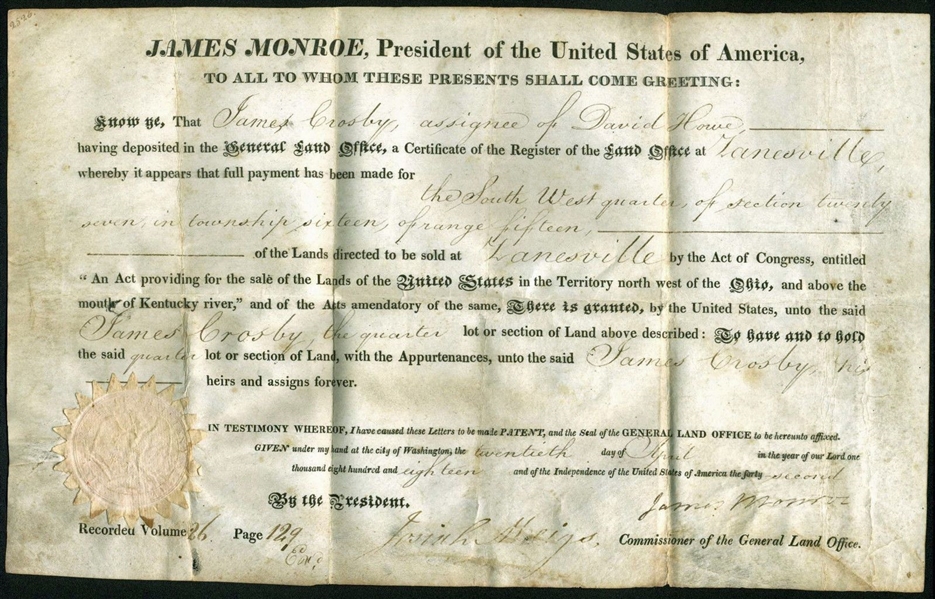 JAMES MONROE, President of the United States of America,
TO ALL TO WHOM THESE PRESENTS SHALL COME GREETING:
Know ye, That James Crosby, assignee of David Howe,
having deposited in the General Land Office, a Certificate of the Register of the Land Office at Zanesville,
whereby it appears that full payment has been made for
the South West quarter, of section twenty
seven, in township sixteen, of range fifteen,
of the Lands directed to be sold at Zanesville by the Act of Congress, entitled
"An Act providing for the sale of the Lands of the United States in the Territory north west of the Ohio, and above the
mouth of Kentucky river," and of the Acts amendatory of the same, There is granted, by the United States, unto the said
James Crosby, the quarter lot or section of Land above described: To have and to hold
the said quarter lot or section of Land, with the Appurtenances, unto the said James Crosby, his
heirs and assigns forever.
IN TESTIMONY WHEREOF, I have caused these Letters to be made PATENT, and the Seal of the GENERAL LAND OFFICE to be hereunto affixed.
GIVEN under my hand at the city of Washington, the twentieth day of April in the year of our Lord one
thousand eight hundred and eighteen and of the Independence of the United States of America the forty second
By the President. James Monroe
Recorded Volume 26 Page 129 Josiah Meigs. Commissioner of the General Land Office.